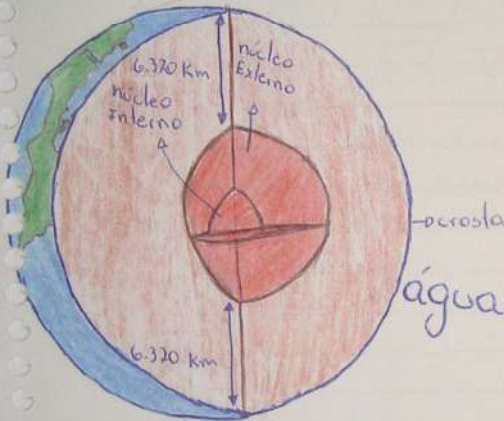 6.370 Km
núcleo
Externo
núcleo
Interno
crosta
água
6.370 Km